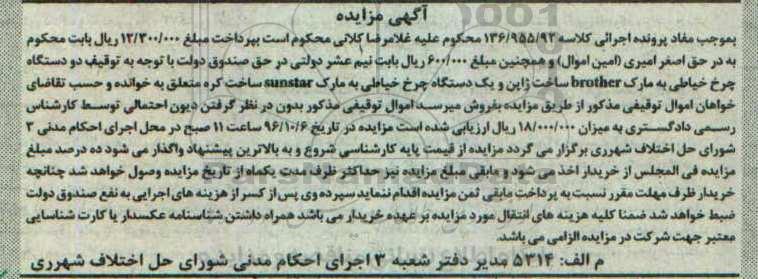 آگهی مزایده
بموجب مفاد پرونده اجرائی کلاسه ۱۳۶/۹۵۵/۹۲ محکوم علیه غلامرضا کلانی محکوم است بپرداخت مبلغ ۱۲/۳۰۰/۰۰۰ ریال بابت محکوم
به در حق اصغر امیری (امین اموال) و همچنین مبلغ ۶۰۰/۰۰۰ ریال بابت نیم عشر دولتی در حق صندوق دولت با توجه به توقیف دو دستگاه
چرخ خیاطی به مارک brother ساخت ژاپن و یک دستگاه چرخ خیاطی به مارک sunstar ساخت کره متعلق به خوانده و حسب تقاضای
خواهان اموال توقیفی مذکور از طریق مزایده بفروش میرسد اموال توقیفی مذکور بدون در نظر گرفتن دیون احتمالی توسط کارشناس
رسمی دادگستری به میزان ۱۸/۰۰۰/۰۰۰ ریال ارزیابی شده است مزایده در تاریخ ۹۶/۱۰/۶ ساعت ۱۱ صبح در محل اجرای احکام مدنی ۳
شورای حل اختلاف شهرری برگزار می گردد مزایده از قیمت پایه کارشناسی شروع و به بالاترین پیشنهاد واگذار می شود ده درصد مبلغ
مزایده فی المجلس از خریدار اخذ می شود و مابقی مبلغ مزایده نیز حداکثر ظرف مدت یکماه از تاریخ مزایده وصول خواهد شد چنانچه
خریدار ظرف مهلت مقرر نسبت به پرداخت مابقی ثمن مزایده اقدام ننماید سپرده وی پس از کسر از هزینه های اجرایی به نفع صندوق دولت
ضبط خواهد شد ضمنا کلیه هزینه های انتقال مورد مزایده بر عهده خریدار می باشد همراه داشتن شناسنامه عکسدار یا کارت شناسایی
معتبر جهت شرکت در مزایده الزامی می باشد.
م الف: ۵۳۱۴ مدیر دفتر شعبه ۳ اجرای احکام مدنی شورای حل اختلاف شهرری